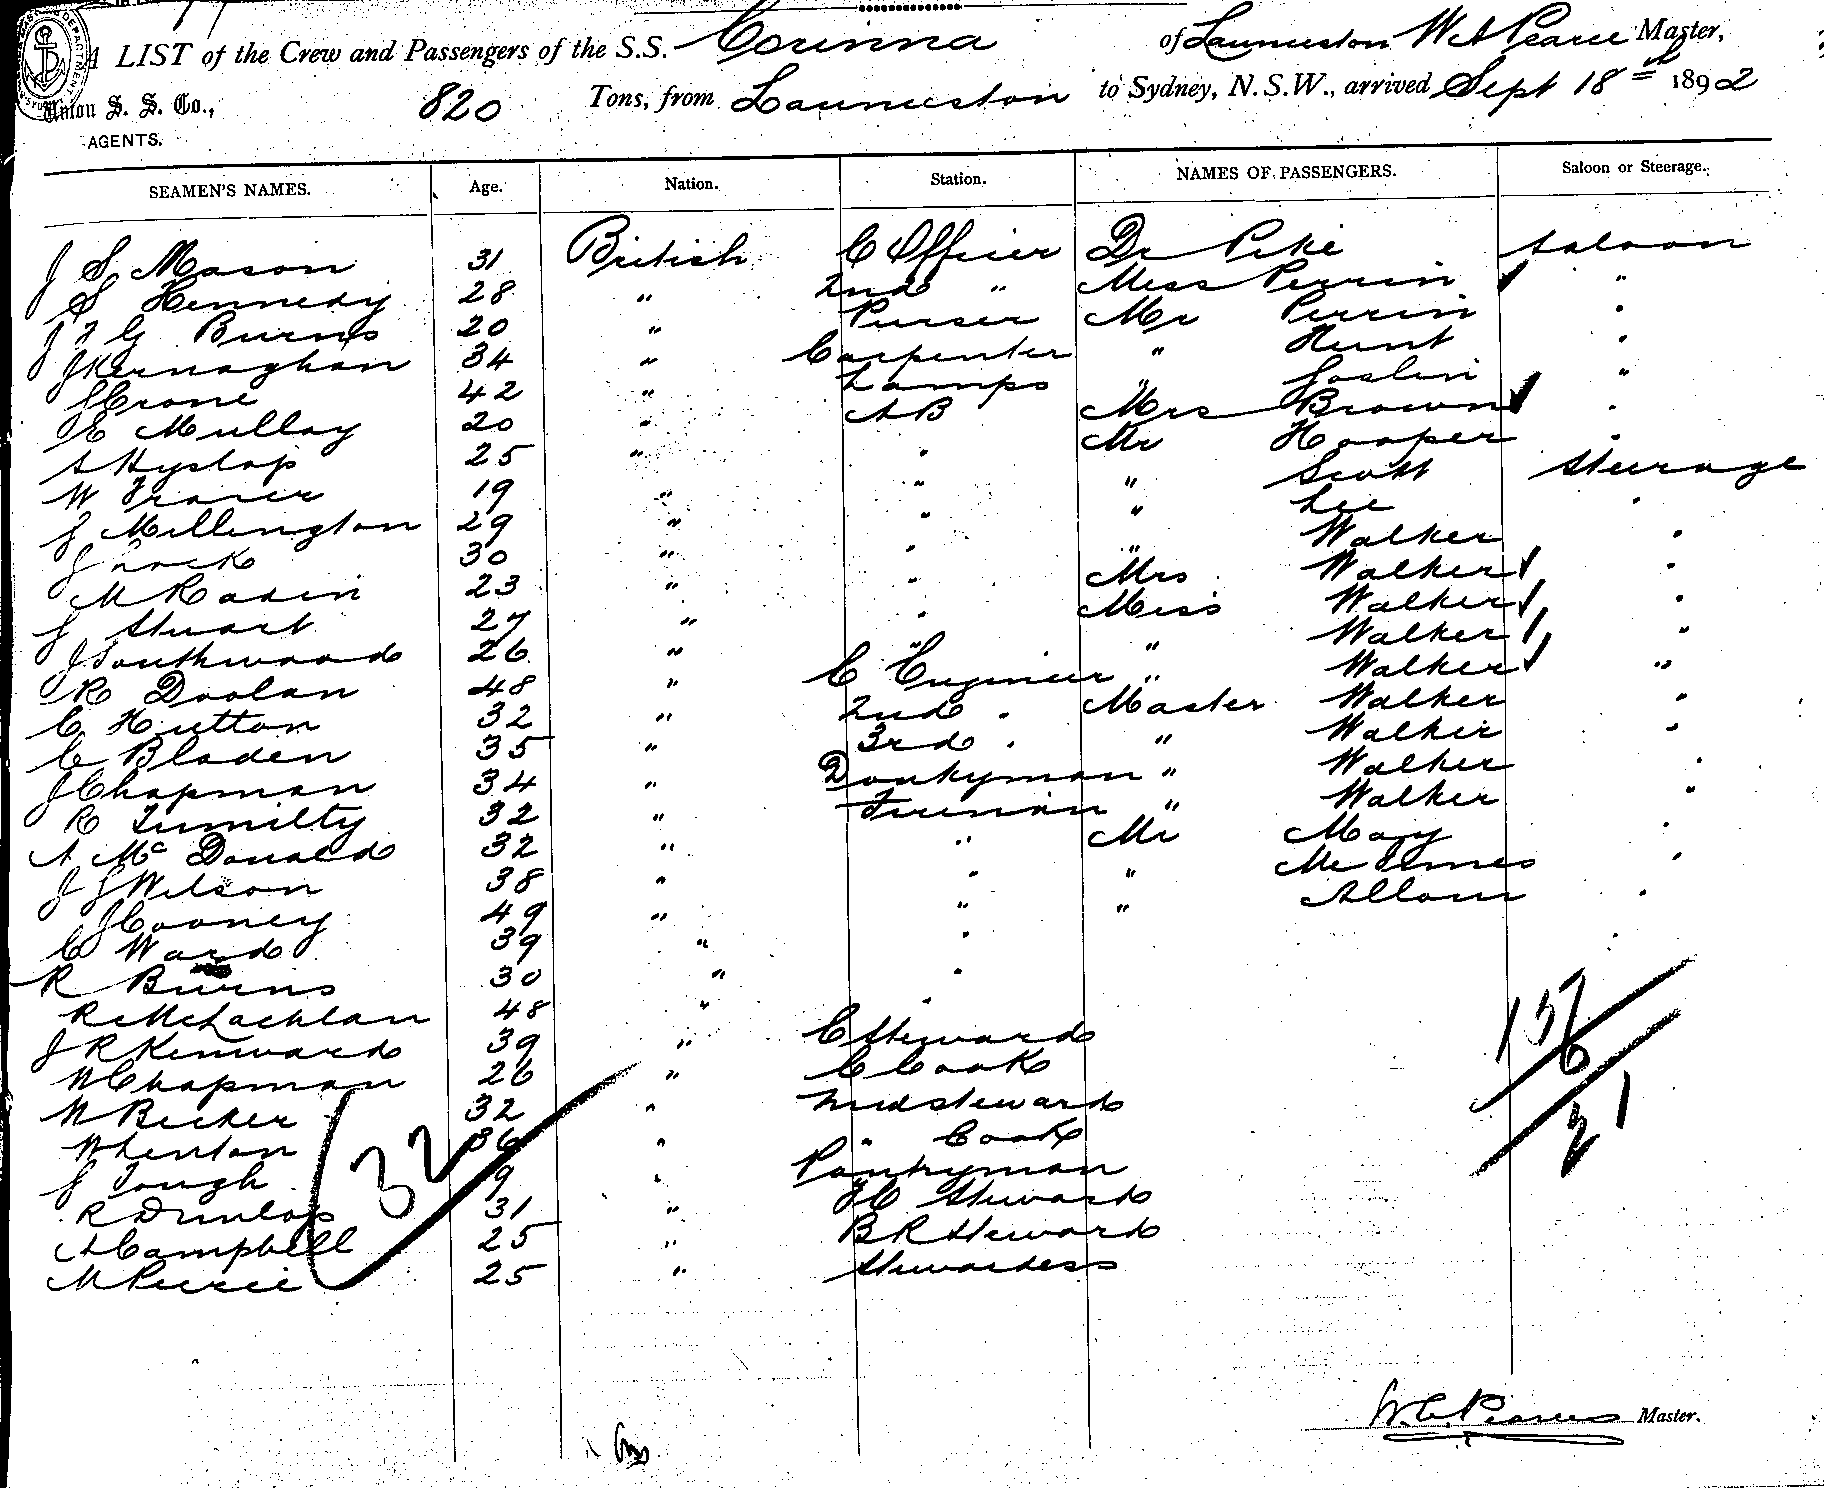 A LIST of the Crew and Passengers of the S.S. Corinna of Launceston W A Pearce Master,
Union S. S. Co., 820 Tons, from Launceston to Sydney, N.S.W., arrived Sept 18th 1892
AGENTS.
SEAMEN'S NAMES. Age. Nation. Station. NAMES OF PASSENGERS. Saloon or Steerage.
J S Mason 31 British C Officer Dr Pike Saloon
S Kennedy 28 " 2nd " Miss Perrin "
J F G Burns 20 " Purser Mr Perrin "
J Kernaghan 34 " Carpenter " Hunt "
J Crone 42 " Lamps " Joslin "
E Mulloy 20 " AB Mrs Brown "
A Hyslop 25 " " Mr Hooper "
W Fraser 19 " " " Scott Steerage
J Millington 29 " " " Lee "
J 30 " " " Walker "
M Radin 23 " " Mrs Walker "
J Stuart 27 " " Miss Walker "
J Southwood 26 " " " Walker "
R Doolan 48 " C Engineer " Walker "
C Hutton 32 " 2nd " Master Walker "
C Bladen 35 " 3rd " " Walker "
J Chapman 34 " Donkyman " Walker "
R Tumilty 32 " Fireman " Walker "
A McDonald 32 " " Mr "
J J Wilson 38 " " " "
J Cooney 49 " " " "
C Ward 39 " "
R Burns 30 " "
R McLachlan 48 " "
J R Kenward 39 " C Steward
W Chapman 26 " C Cook 137
W Becker 32 " 2nd steward
W Lenton 36 " " Cook 21
J Tough 9 " Pantryman
R Dunlop 31 " Steward
A Campbell 25 " B R Steward
M Peirce 25 " Stewardess
32
Master.